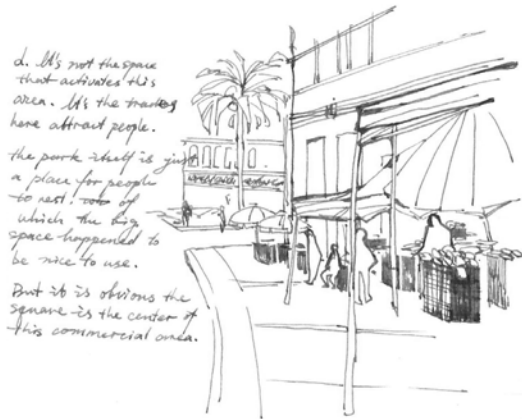 d. It's not the space
that activates this
area. It's the trades
here attract people.
the park itself is just
a place for people
to rest. of
which the big
space happened to
be nice to use.
But it is obvious the
square is the center of
this commercial area.